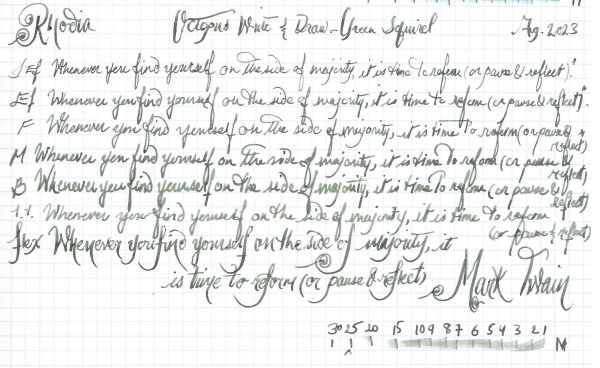 Rhodia Octopus Write & Draw - Green Squirrel Aug. 2023
JEf Whenever you find yourself on the side of majority, it is time to reform (or pause & reflect)."
Ef Whenever you find yourself on the side of majority, it is time to reform (or pause & reflect)."
F Whenever you find yourself on the side of majority, it is time to reform (or pause & reflect)
M Whenever you find yourself on the side of majority, it is time to reform (or pause & reflect)
B Whenever you find yourself on the side of majority, it is time to reform (or pause & reflect)
1.1. Whenever you find yourself on the side of majority, it is time to reform (or pause & reflect)
flex Whenever you find yourself on the side of majority, it
is time to reform (or pause & reflect)
Mark Twain
30 25 20 15 10 9 8 7 6 5 4 3 2 1
M